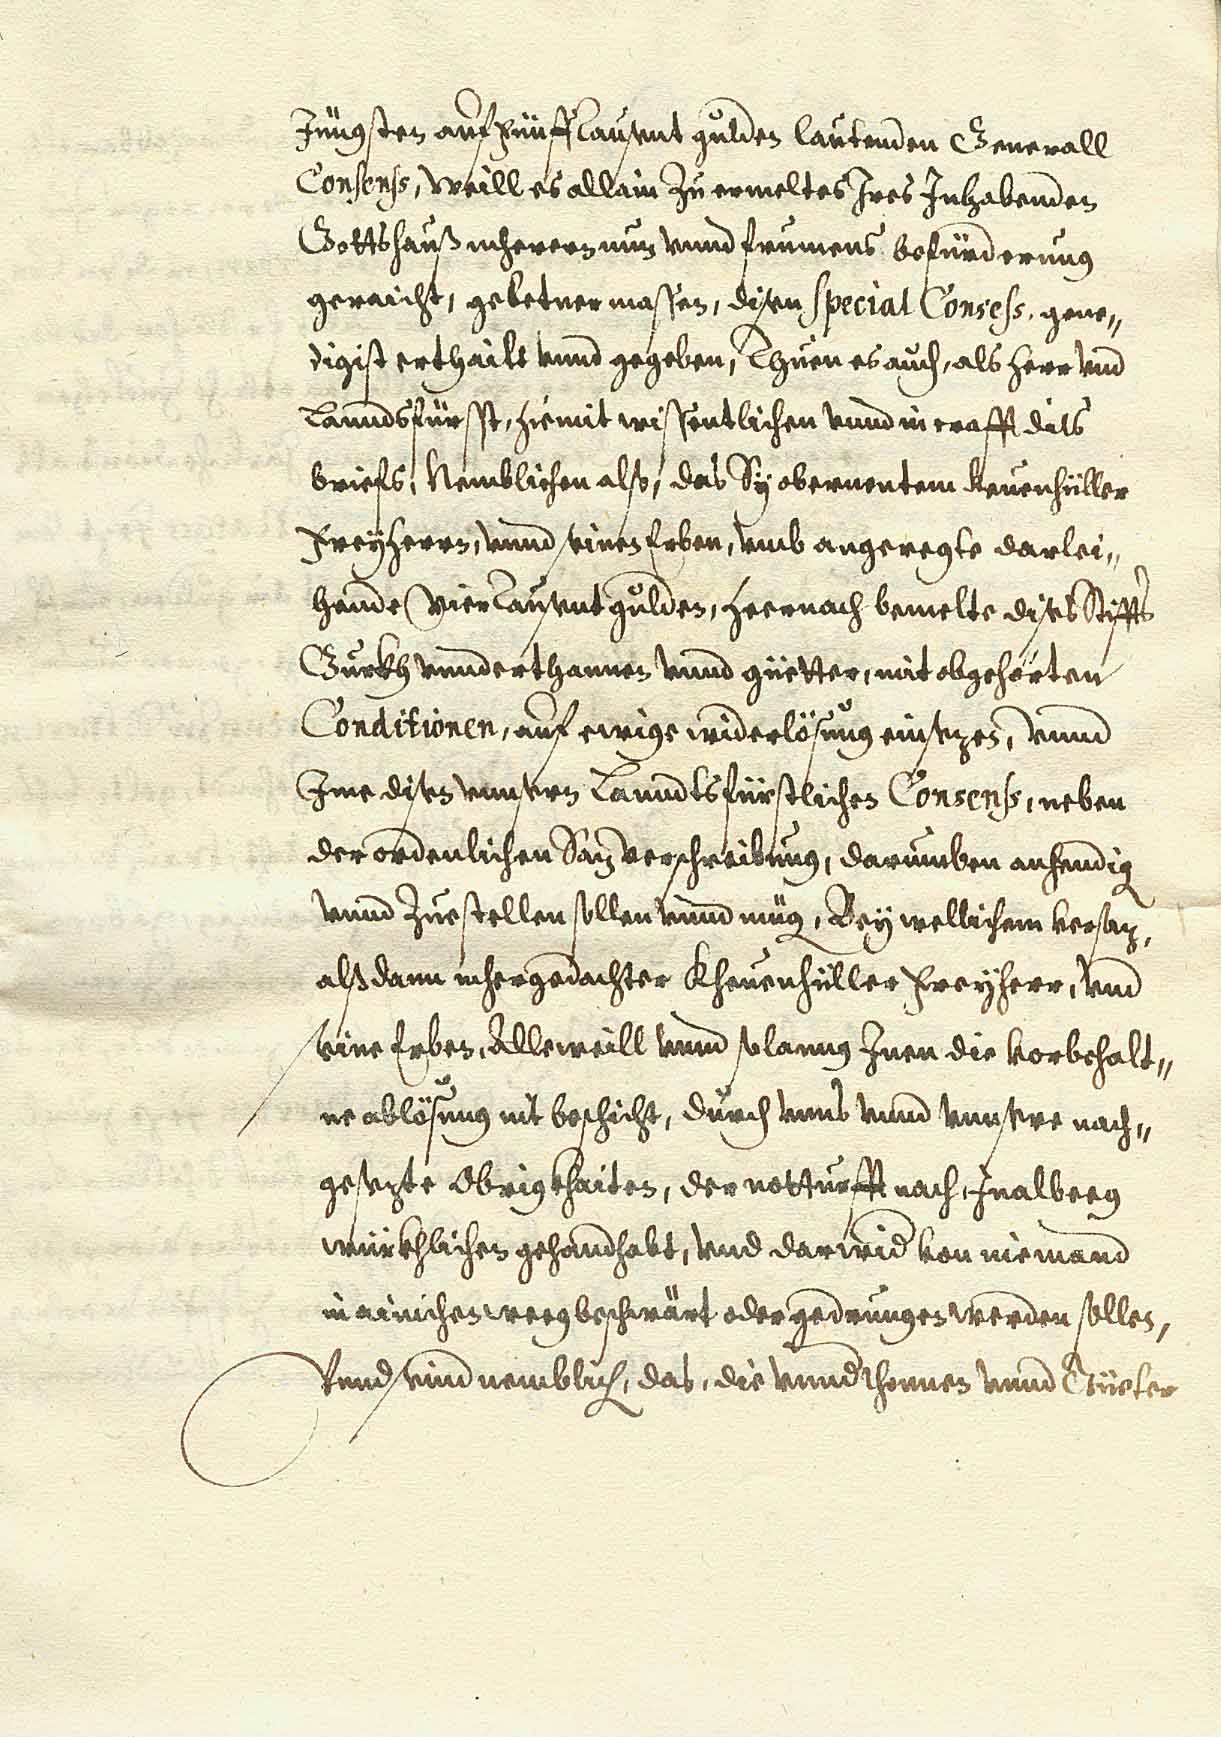 Jüngsten auf Fünfftausent gulden lauttenden Generall
Consenß, weill es allain zu ermeltes Ires Inhabenden
Gottshauß mherern nuz vnnd frumens befürderung
geraicht, gebetnermassen, disen Special Consess, gene„
digist erthailt vnnd gegeben, Thuen es auch, als Herr vnd
Lanndsfürsst, hiemit wissentlichen vnnd in crafft dits
briefs, Nemblichen alß, das Sy obernentem Keuenhüller
Freyherrn, vnnd seinen Erben, vmb angeregte darlei„
hende Viertausent gulden, hernach bemelte dises Stiffts
Gurkh vnnderthannen vnnd güetter, mit obgehörten
Conditionen, auf ewige widerlösung einsezen, vnnd
Ime disen vnnsern Lanndtsfürstlichen Consenß, neben
der ordenlichen Sazverschreibung, darumben anhendig
vnnd Zuestellen sollen vnnd müg, Bey wellichem versaz,
alß dann mhergedachter Kheuenhüller Freyherr, vnd
seine Erben, Alleweill vnnd solanng Inen die vorbehalt„
ne ablösung nit beschicht, durch vnns vnnd vnnsere nach„
gesezte Obrigkhaiten, der notturfft nach, Inalweeg
würkhlichen gehandhabt, vnd darwid von niemand
in ainichen weeg beschwärt oder gedrungen werden sollen,
Vnnd seind nemblich, das, die vnnderthonnen vnnd Güeter